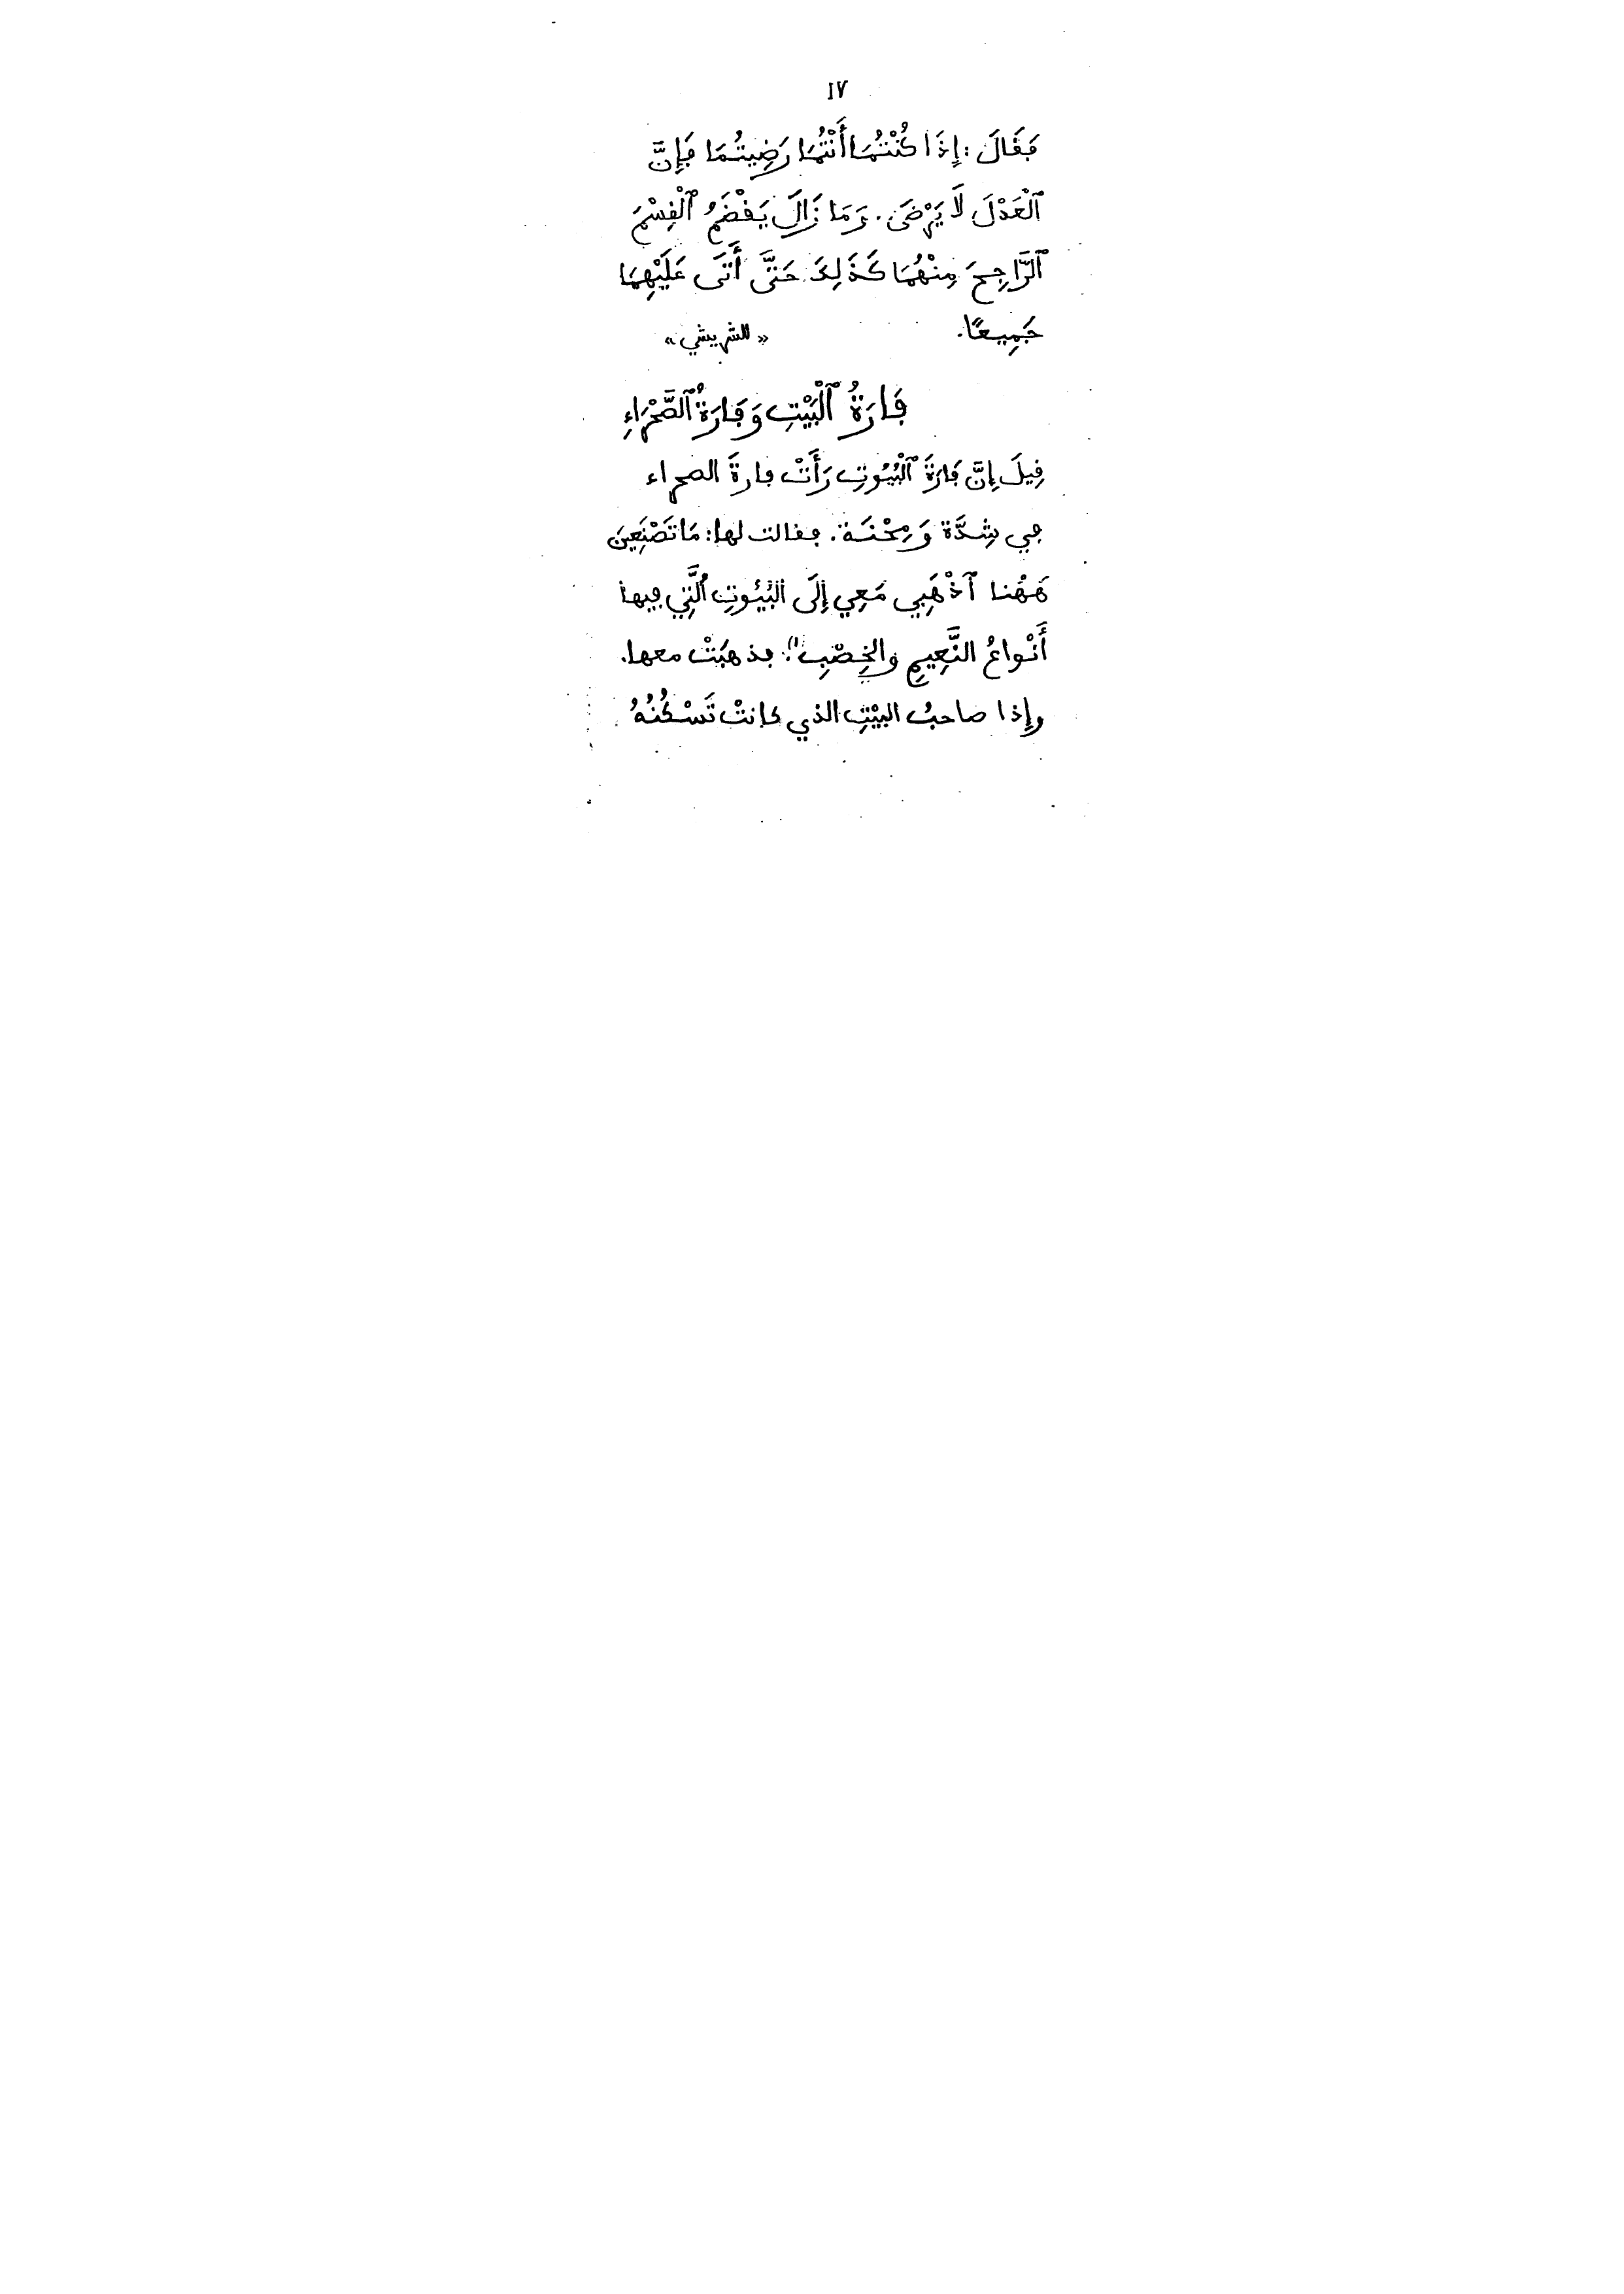 ١٧
فَقَالَ : إِذَا كُنْتُمَا أَنْتُمَا رَضِيتُمَا فَإِنَّ
ٱلْعَدْلَ لَا يَرْضَى. وَمَا زَالَ يَقْضَمُ ٱلْقِسْمَ
ٱلرَّاجِحَ مِنْهُمَا كَذَلِكَ حَتَّى أَتَى عَلَيْهِمَا
جَمِيعًا.
«للشريشي»
فَارَةُ ٱلْبَيْتِ وَفَارَةُ ٱلصَّحْرَاءِ
قِيلَ إِنَّ فَارَةَ ٱلْبُيُوتِ رَأَتْ فارةَ الصحراء
في شِدَّة وَمِحْنَة. فقالت لها: مَا تَصْنَعِينَ
هَهُنا ٱذْهَبِي مَعِي إِلَى البُيُوتِ ٱلَّتِي فيها
أَنْواعُ النَّعِيمِ والخِصْبِ". فذهبَتْ معها.
وإِذا صاحبُ البيْتِ الذي كانتْ تَسْكُنُهُ